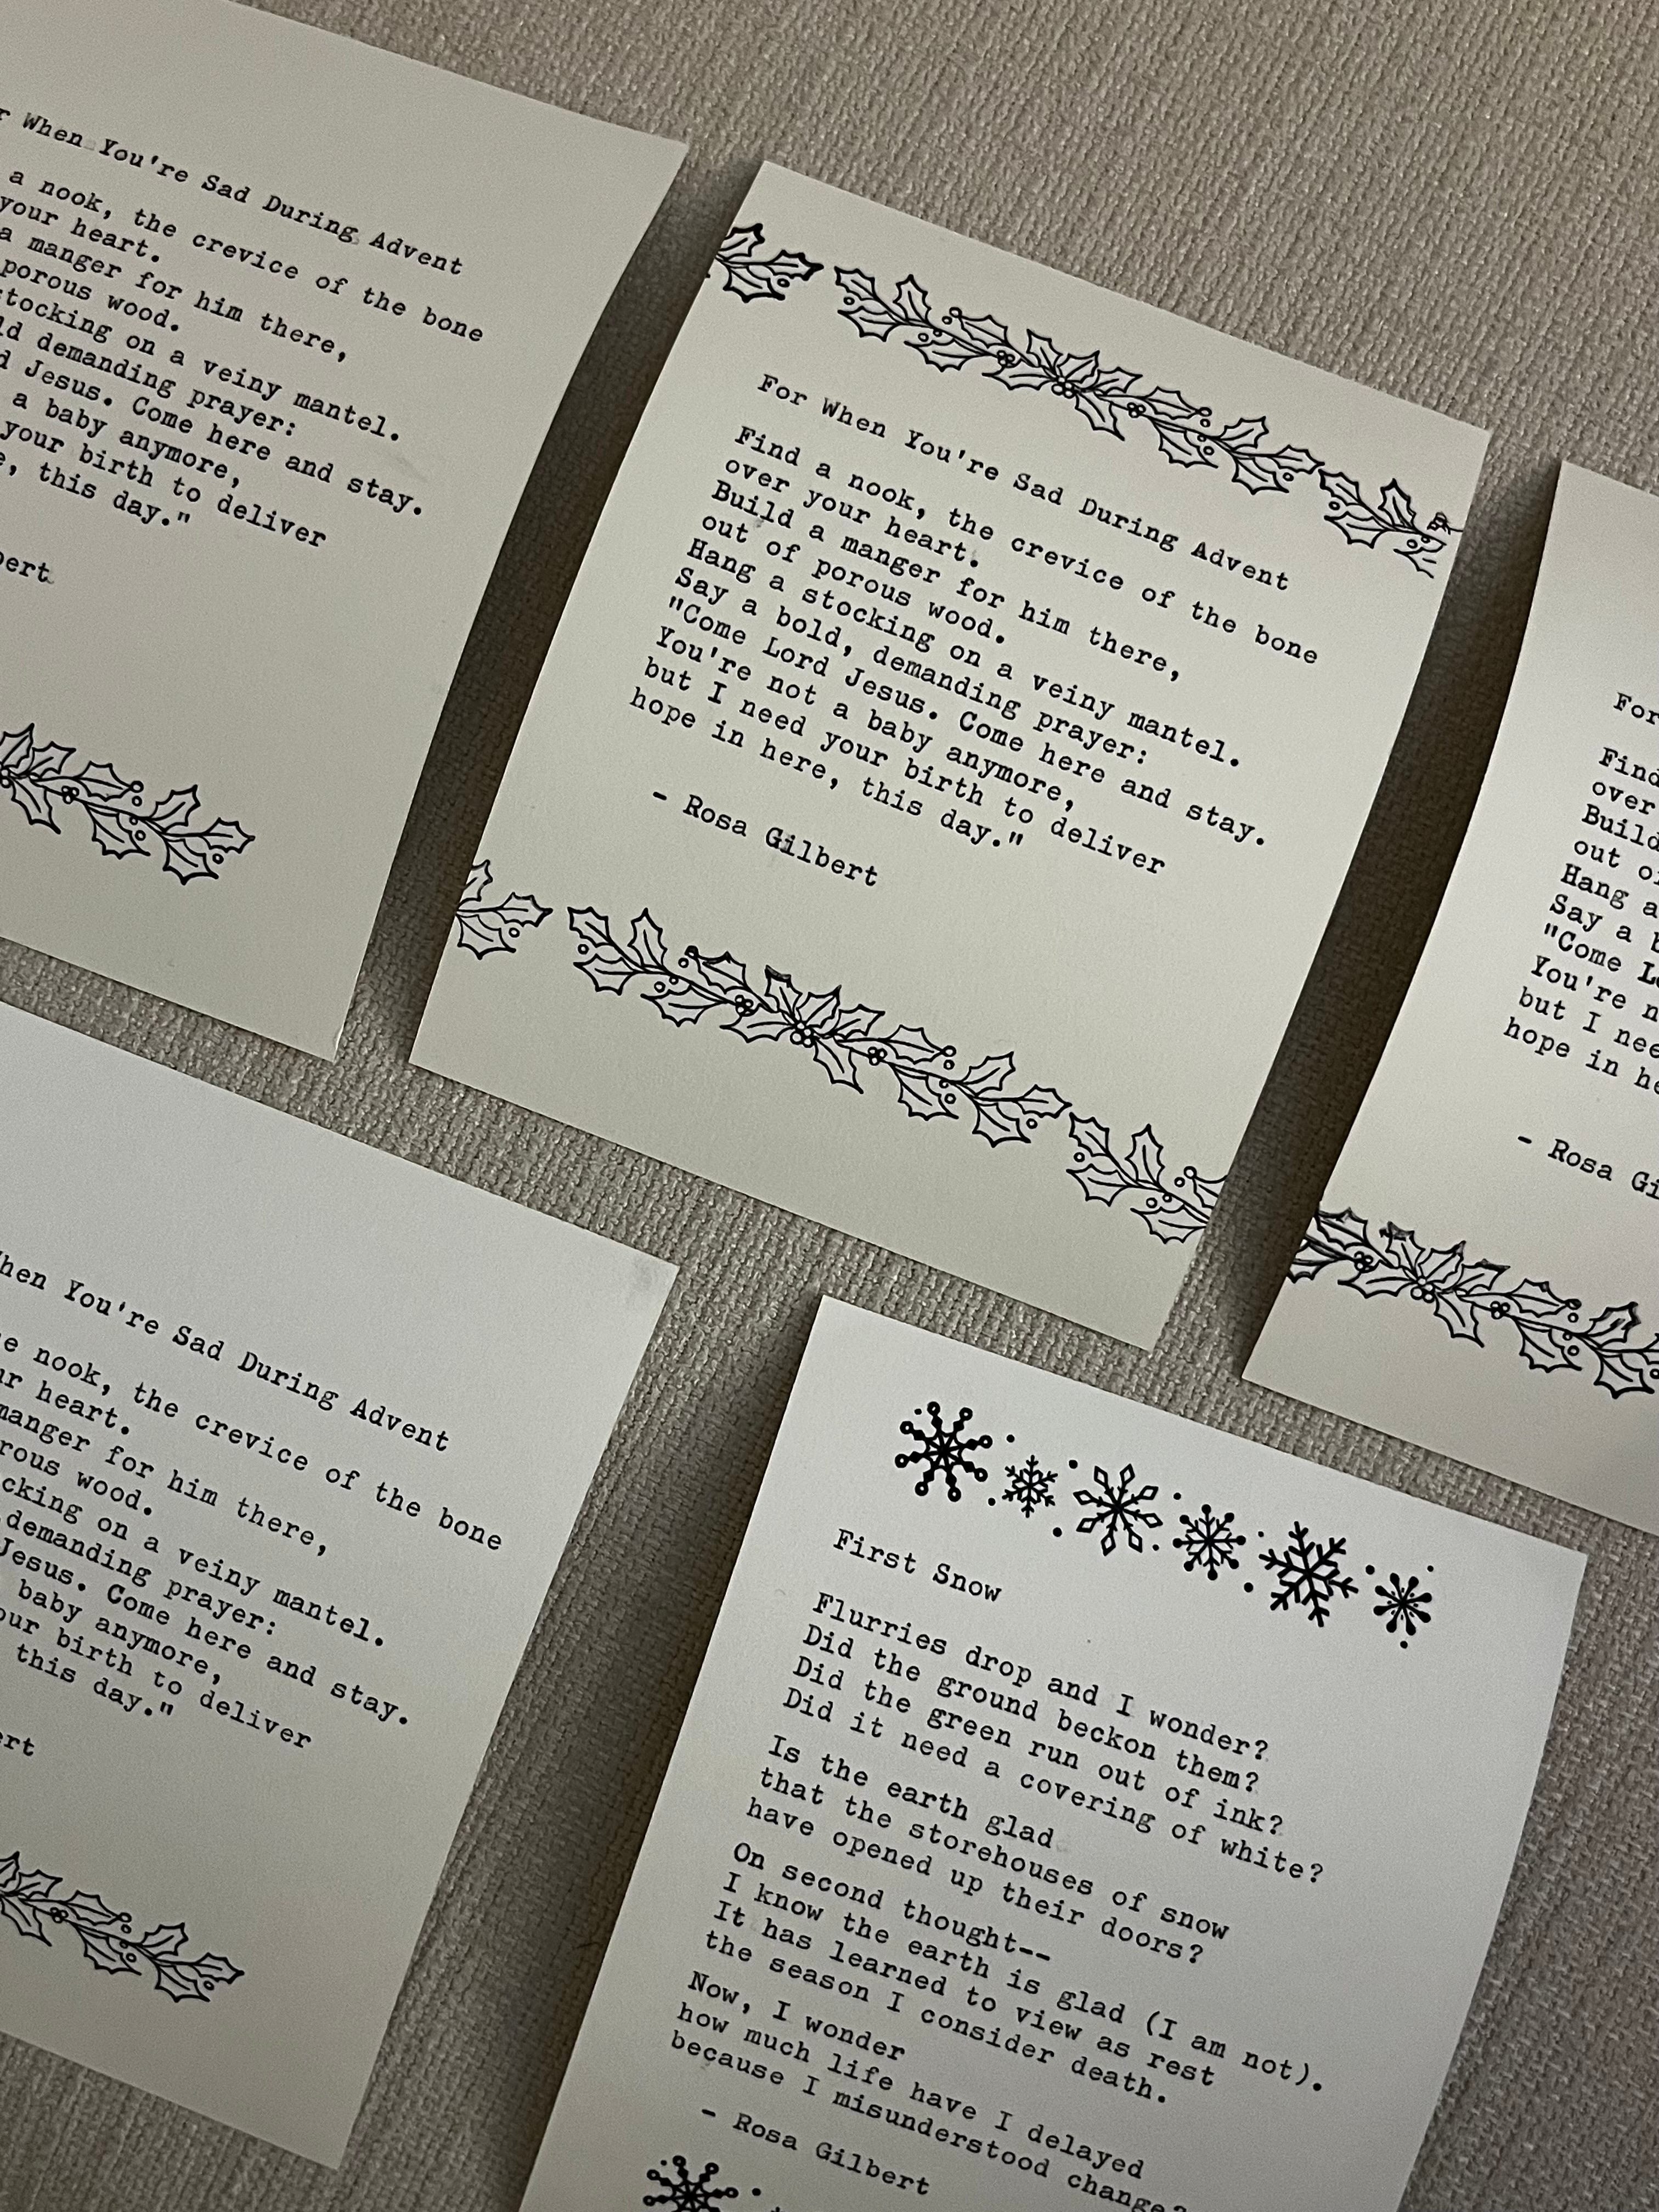 When You're Sad During Advent
a nook, the crevice of the bone
your heart.
a manger for him there,
porous wood.
stocking on a veiny mantel.
demanding prayer:
Jesus. Come here and stay.
a baby anymore,
your birth to deliver
this day."
For When You're Sad During Advent
Find a nook, the crevice of the bone
over your heart.
Build a manger for him there,
out of porous wood.
Hang a stocking on a veiny mantel.
Say a bold, demanding prayer:
"Come Lord Jesus. Come here and stay.
You're not a baby anymore,
but I need your birth to deliver
hope in here, this day."
- Rosa Gilbert
For
Find
over
Build
out
Hang a
Say a
"Come
You're
but I
hope in
- Rosa
You're Sad During Advent
nook, the crevice of the bone
heart.
manger for him there,
wood.
on a veiny mantel.
demanding prayer:
Jesus. Come here and stay.
baby anymore,
birth to deliver
this day."
First Snow
Flurries drop and I wonder?
Did the ground beckon them?
Did the green run out of ink?
Did it need a covering of white?
Is the earth glad
that the storehouses of snow
have opened up their doors?
On second thought--
I know the earth is glad (I am not).
It has learned to view as rest
the season I consider death.
Now, I wonder
how much life have I delayed
because I misunderstood change?
- Rosa Gilbert